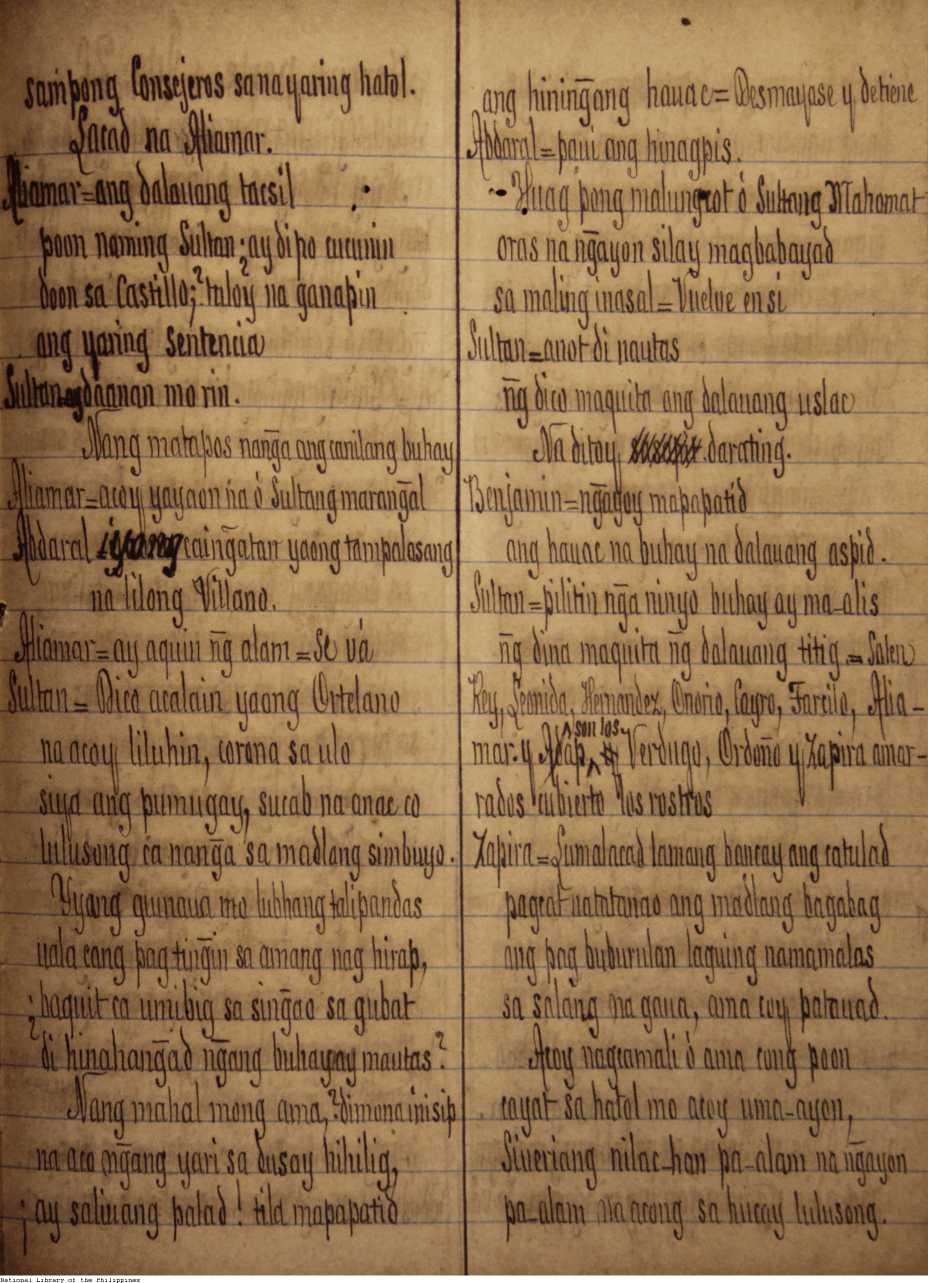 sampong Consejeros sa nayaring hatol.
Lacad na Aliamar.
Aliamar=ang dalauang tacsil
poon naming Sultan; ay dipo cucunin
doon sa Castillo;? tuloy na ganapin
ang yaring sentencia
Sultan= gaanan mo rin.
Nang matapos nan̄ga ang canilang buhay
Aliamar=acoy yayaon na ó Sultang maran̄gal
Abdaral iyong cain̄gatan yaong tampalasang
na lilong Villano.
Aliamar=ay aquin n̄g alam=Se vá
Sultan= Dico acalain yaong Ortelano
na acoy liluhin, corona sa ulo
siya ang pumugay, sucab na anac co
lulusong ca nan̄ga sa madlang simbuyo.
Yyong guinaua mo lubhang talipandas
uala cang pag tin̄gin sa amang nag hirap,
¿baquit ca umibig sa sin̄gao sa gubat
di hinahan̄gad n̄gang buhayay mautas?
Nang mahal mong ama, ?dimona inisip
na aco n̄gang yari sa dusay hihilig,
¡ay saliuang palad! tila mapapatid
ang hinin̄gang hauac=Desmayase y detiene
Abdaral=paui ang hinagpis.
Huag pong malungcot ó Sultang Mahomat
oras na n̄gayon silay magbabayad
sa maling inasal=Vuelve en si
Sultan=anot di nautas
n̄g dico maquita ang dalauang uslac
Na ditoy darating.
Benjamin=n̄gayoy mapapatid
ang hauac na buhay na dalauang aspid.
Sultan=pilitin n̄ga ninyo buhay ay ma-alis
n̄g dina maquita n̄g dalauang titig=Salen
Rey, Leonida, Hernandez, Onorio, Cayro, Farcilo, Alia-
mar. y Adap, son los Verdugo, Ordoño y Zapira amar-
rados cubierto los rostros
Zapira=Lumalacad lamang bancay ang catulad
pagcat natatanao ang madlang bagabag
ang pag buburulan laguing namamalas
sa salang na gaua, ama coy patauad.
Acoy nagcamali ó ama cong poon
cayat sa hatol mo acoy uma-ayon,
Sineriang nilac-han pa-alam na n̄gayon
pa-alam na acong sa hucay lulusong.
National Library of the Philippines